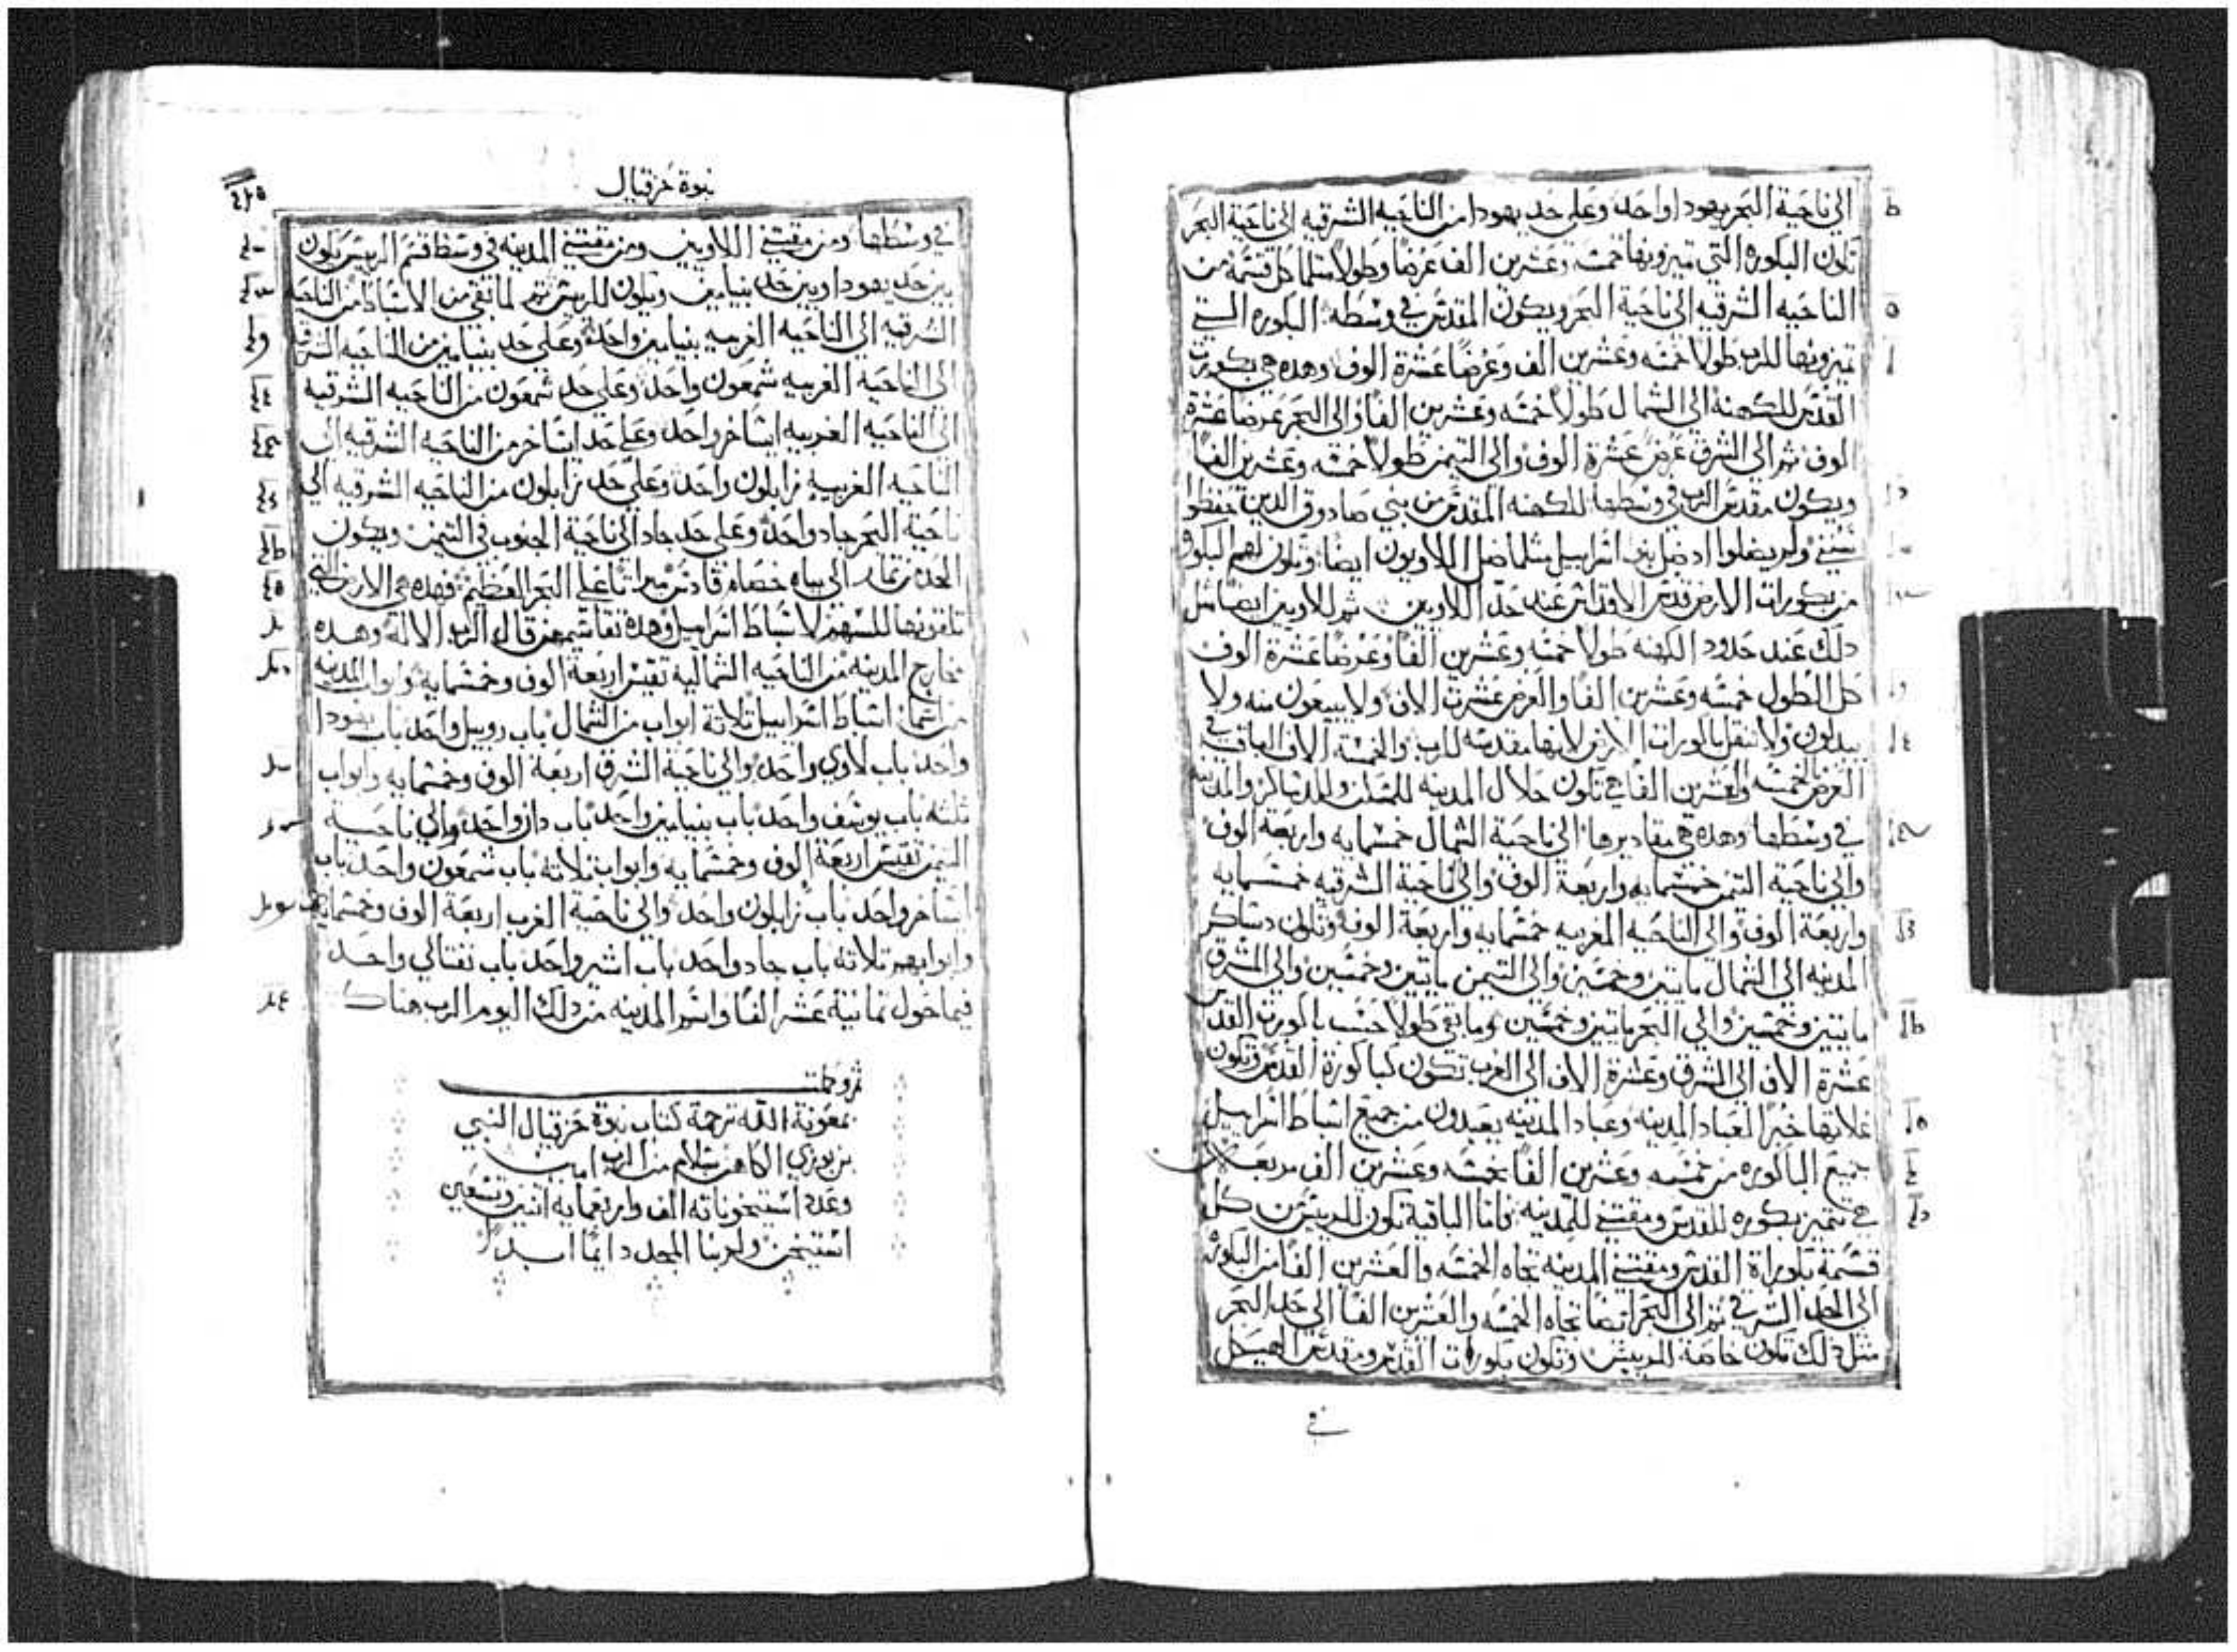 الي ناحية البحر يهودا واحد وعلي حد يهودا من الناحيه الشرقيه الي ناحية البحر
تكون البكوره التي تميزونها خمسة وعشرين الف عرضا وطولا مثلما كل قسمة من
الناحيه الشرقيه الي ناحية البحر ويكون المقدس في وسطه البكوره التي
تميزونها للرب طولا خمسه وعشرين الف وعرضا عشرة الوف وهده هي بكورات
القدس للكهنة الي الشمال طولا خمسه وعشرين الفا والي البحر عرضا عشرة
الوف ثم الي الشرق عرض عشرة الوف والي التيمن طولا خمسه وعشرين الفا
ويكون مقدس الرب في وسطها للكهنه المقدس من بني صادوق الدين حفظوا
سنني ولم يضلوا اد ضل بني اسراييل مثلما ضل اللاويون ايضا وتكون لهم البكوره
من بكورات الارض قدس الاقداس عند حد اللاويين ثم للاويين ايضا مثل
دلك عند حدود الكهنه طولا خمسه وعشرين الفا وعرضا عشرة الوف
كل الطول خمسه وعشرين الفا والعرض عشرت الاف ولا يبيعون منه ولا
يبدلون ولا تنقل باكورات الارض لانها مقدسه للرب والخمسة الاف الباقيه في
العرض الخمسه والعشرين الفا هي تكون حلال المدينه للسكن وللدساكر والمدينه
في وسطها وهده هي مقاديرها الي ناحية الشمال خمسمايه واربعة الوف
والي ناحية التيمن خمسمايه واربعة الوف والي ناحية الشرقيه خمسمايه
واربعة الوف والي الناحيه المغربيه خمسمايه واربعة الوف وتكون دساكر
المدينه الي الشمال مايتين وخمسين والي التيمن مايتين وخمسين والي المشرق
مايتين وخمسين والي البحر مايتين وخمسين وما بقي طولا حسب باكورت القدس
عشرة الاف الي الشرق وعشرة الاف الي الغرب تكون كباكورة القدس وتكون
غلاتها خبزا لعباد المدينه وعباد المدينه يعبدون من جميع اسباط اسراييل
جميع الباكوره من خمسه وعشرين الفا بخمسه وعشرين الف مربعه
هي تتميز بكوره للقدس ومقتني للمدينه فاما الباقية تكون للرييس من كل
قسمة بكوراة القدس ومقتني المدينه تجاه الخمسه والعشرين الفا من البكوره
الي الحد الشرقي ثم الي البحر ايضا تجاه الخمسه والعشرين الفا الي حد البحر
مثل دلك تكون خاصة للرييس وتكون بكورات القدس ومقدس الهيكل
في
نبوة حزقيال
في وسطها ومن مقتني اللاويين ومن مقتني المدينه في وسط قسم الرييس يكون
بين حد يهودا وبين حد بنيامين ويكون للرييس ثم لما بقي من الاسباط من الناحيه
الشرقيه الي الناحيه الغربيه بنيامين واحد وعلي حد بنيامين من الناحيه الشرقيه
الي الناحيه الغربيه شمعون واحد وعلي حد شمعون من الناحيه الشرقيه
الي الناحيه الغربيه اساخر واحد وعلي حد اساخر من الناحيه الشرقيه الي
الناحيه الغربيه زابلون واحد وعلي حد زابلون من الناحيه الشرقيه الي
ناحية البحر جاد واحد وعلي حد جاد الي ناحية الجنوب في التيمن ويكون
الحد من تمار الي مياه خصام قادس ميراثا علي البحر العظيم فهده هي الارض التي
تلقونها للسهم لاسباط اسراييل وهده تقاسيمهم قال الرب الاله وهده
مخارج المدينه من الناحيه الشماليه تقيس اربعة الوف وخمسمايه وابواب المدينه
من اسما اسباط اسراييل ثلاثة ابواب من الشمال باب روبيل واحد باب يهودا
واحد باب لاوي واحد والي ناحية الشرق اربعة الوف وخمسمايه وابواب
ثلثه باب يوسف واحد باب بنيامين واحد باب دان واحد والي ناحية
التيمن تقيس اربعة الوف وخمسمايه وابواب ثلاثه باب شمعون واحد باب
اساخر واحد باب زابلون واحد والي ناحية الغرب اربعة الوف وخمسمايه
وابوابهم ثلاثه باب جاد واحد باب اشير واحد باب نفتالي واحد
فيما حول ثمانية عشر الفا واسم المدينه من دلك اليوم الرب هناك
تم وكملت
بمعونة الله ترجمة كتاب نبوة حزقيال النبي
بن بوزي الكاهن بسلام من الرب امين
وعدد استيخوناته الف واربعمايه اتنين وتسعين
استيخن ولربنا المجد دايما ابدا